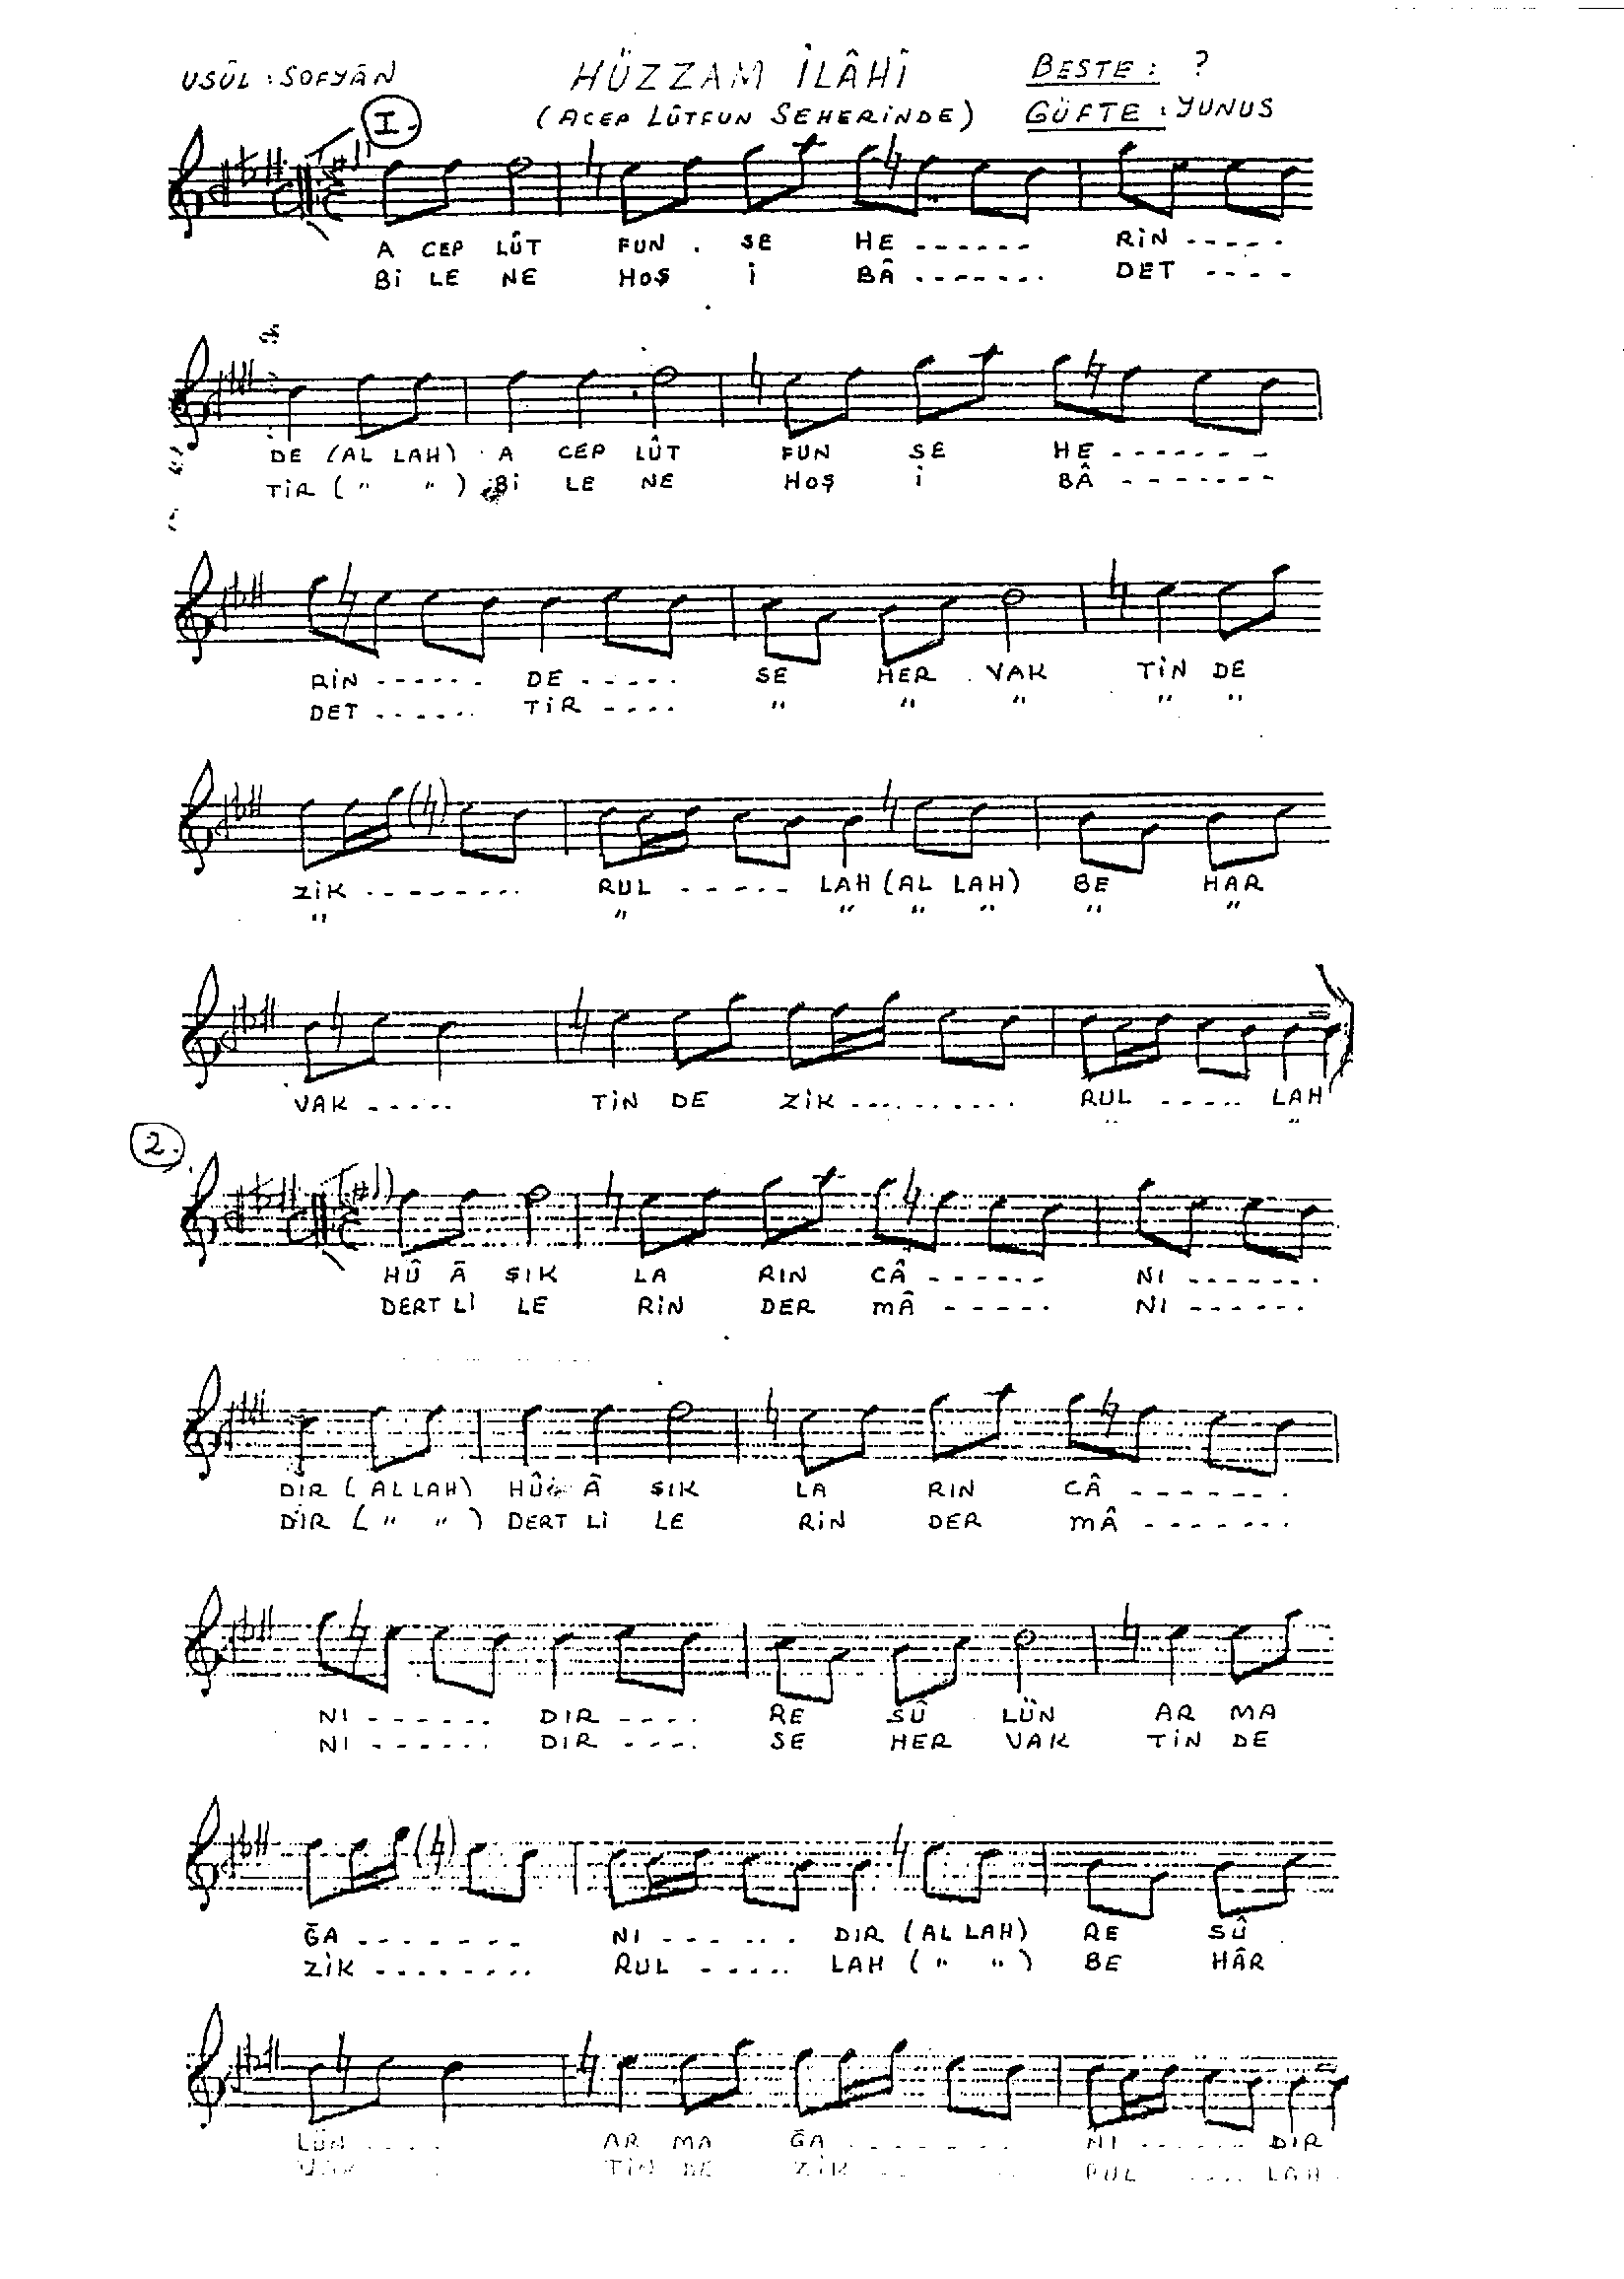 USÛL : SOFYÂN HÜZZAM İLÂHÎ BESTE : ?
(ACEP LÛTFUN SEHERİNDE) GÜFTE : YUNUS
I.
A CEP LÛT FUN . SE HE ------ RİN -----
Bİ LE NE HOŞ İ BÂ ------- DET ----
DE (AL LAH) A CEP LÛT FUN SE HE -------
TİR (" ") Bİ LE NE HOŞ İ BÂ -------
RİN ------ DE ----- SE HER VAK TİN DE
DET ------ TİR ---- " " " " "
ZİK -------- RUL ----- LAH (AL LAH) BE HAR
" " " " " " "
VAK ----- TİN DE ZİK --------- RUL ----- LAH
" "
2.
HÛ Â ŞIK LA RIN CÂ ------ NI -------
DERT Lİ LE RİN DER MÂ ----- NI ------
DIR (AL LAH) HÛ Â ŞIK LA RIN CÂ -------
DİR (" ") DERT Lİ LE RİN DER MÂ ------
NI ------ DIR ---- RE SÛ LÜN AR MA
NI ------ DIR ---- SE HER VAK TİN DE
ĞA ------- NI ------ DIR (AL LAH) RE SÛ
ZİK -------- RUL ----- LAH (" ") BE HÂR
LÜN ---- AR MA ĞA -------- NI ------ DIR
VAK TİN DE ZİK ------ RUL ---- LAH